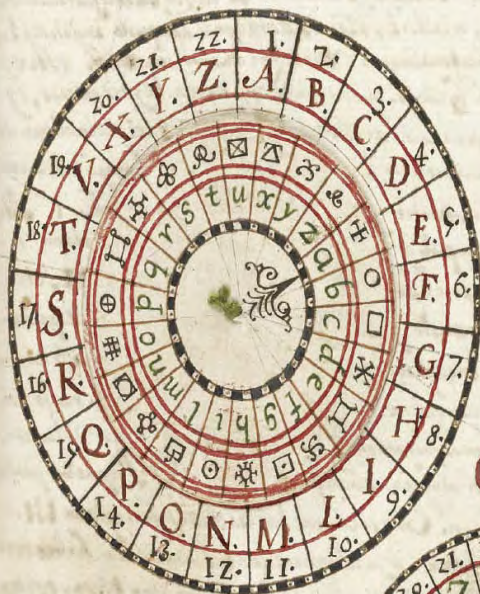 1. 2. 3. 4. 5. 6. 7. 8. 9. 10. 11. 12. 13. 14. 15 16 17. 18. 19. 20. 21. 22.
A. B. C. D. E. F. G. H I. L M. N O. P. Q. R. S. T. V. X. Y. Z.
a b c d e f g h i l m n o p q r s t u x y z
20. 21.
Z